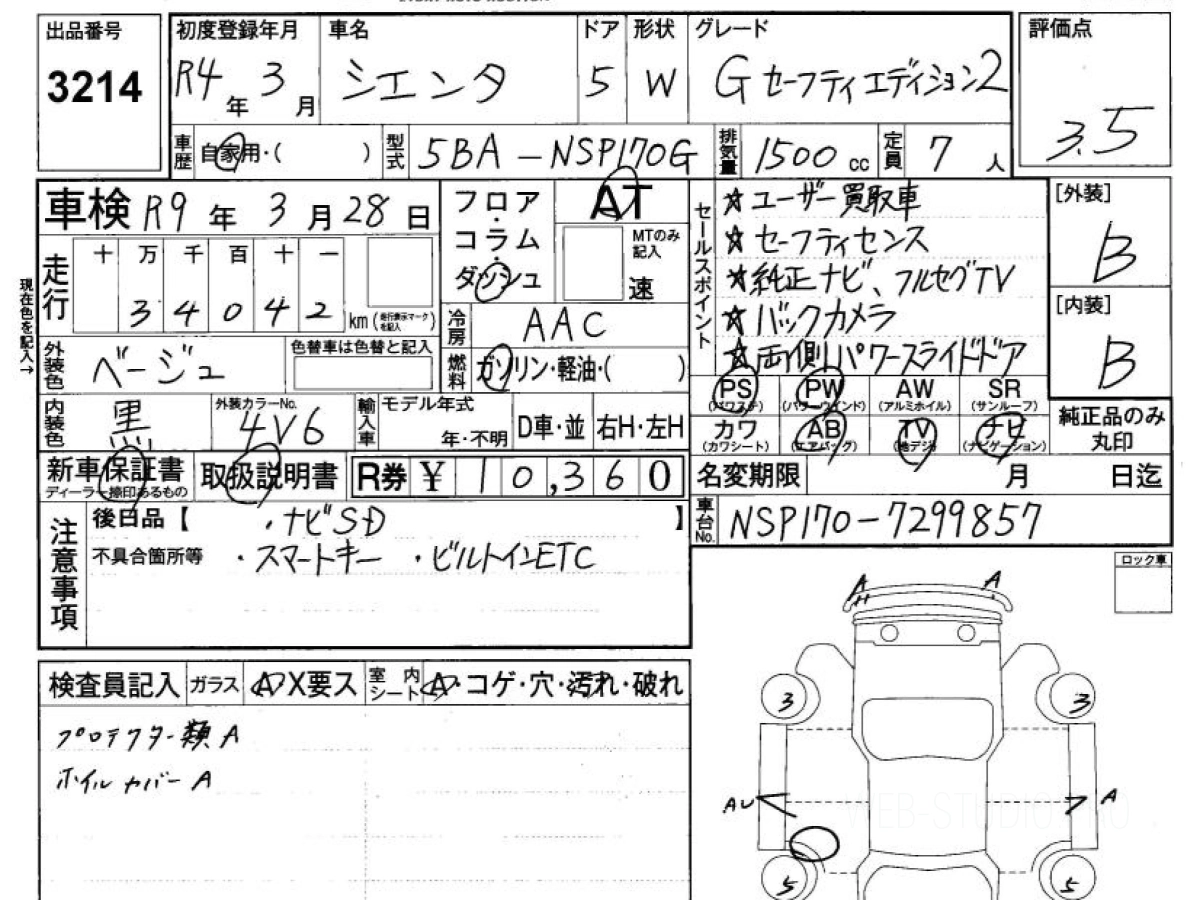 出品番号 初度登録年月 車名 ドア 形状 グレード 評価点
3214 R4年3月 シエンタ 5 W G セーフティエディション2 3.5
車歴 自家用・( ) 型式 5BA-NSP170G 排気量 1500cc 定員 7人
車検 R9年3月28日 フロア・コラム・ダッシュ AT MTのみ記入 速
走行 十 万 千 百 十 一
3 4 0 4 2 km (走行表示マークを記入)
現在色を記入→
冷房 AAC
外装色 ベージュ 色替車は色替と記入 燃料 ガソリン・軽油・( )
内装色 黒 外装カラーNo. 4V6 輸入車 モデル年式 年・不明 D車・並 右H・左H
新車保証書 ディーラー捺印あるもの 取扱説明書 R券 ¥10,360
セールスポイント
☆ユーザー買取車
☆セーフティセンス
☆純正ナビ、フルセグTV
☆バックカメラ
☆両側パワースライドドア
[外装]
B
[内装]
B
PS (パワステ) PW (パワーウインド) AW (アルミホイル) SR (サンルーフ)
カワ (カワシート) AB (エアバック) TV (地デジ) ナビ (ナビゲーション)
純正品のみ丸印
名変期限 月 日迄
車台No. NSP170-7299857
注意事項
後日品【 ・ナビSD 】
不具合箇所等 ・スマートキー ・ビルトインETC
ロック車
検査員記入 ガラス A・X要ス 室内シート A・コゲ・穴・汚れ・破れ
プロテクター類 A
ホイルカバー A
A A
3 3
AU A
5 5
WEB-STUDIOS.RO